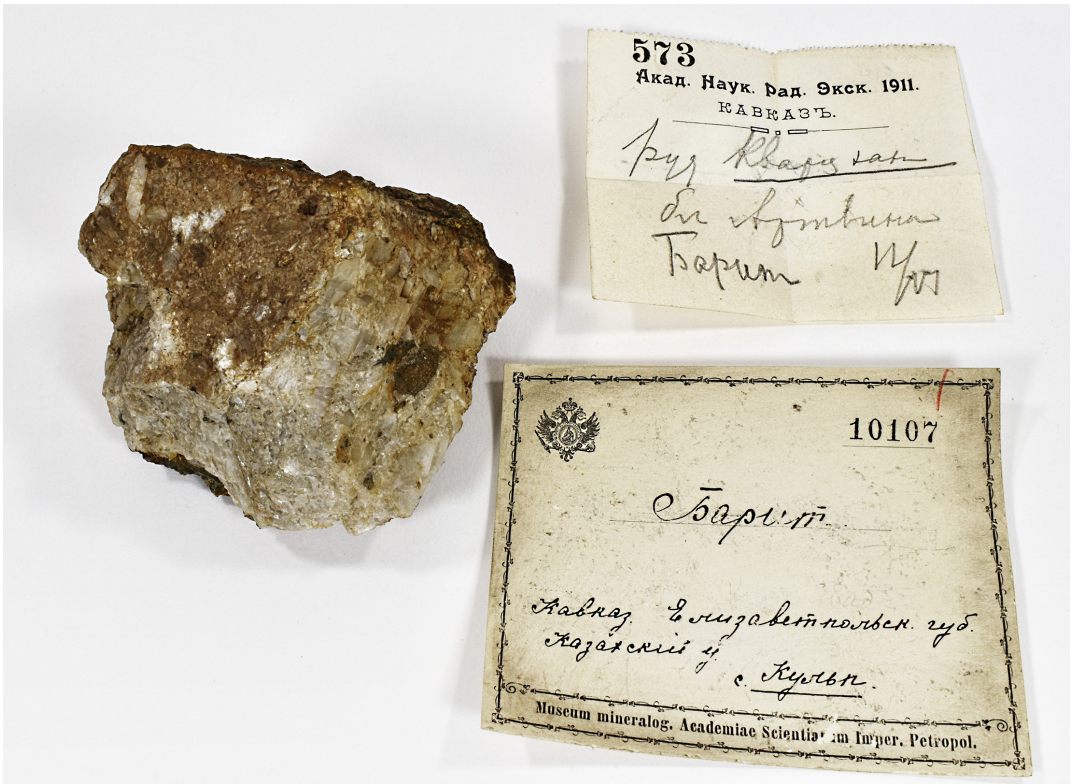 573
Акад. Наук. Рад. Экск. 1911.
КАВКАЗЪ.
руд Кварцхан
бл Артвина
Барит VI
10107
Барит.
Кавказ. Елизаветпольск. губ.
Казахскій у.
с. Кульп.
Museum mineralog. Academiae Scientiarum Imper. Petropol.